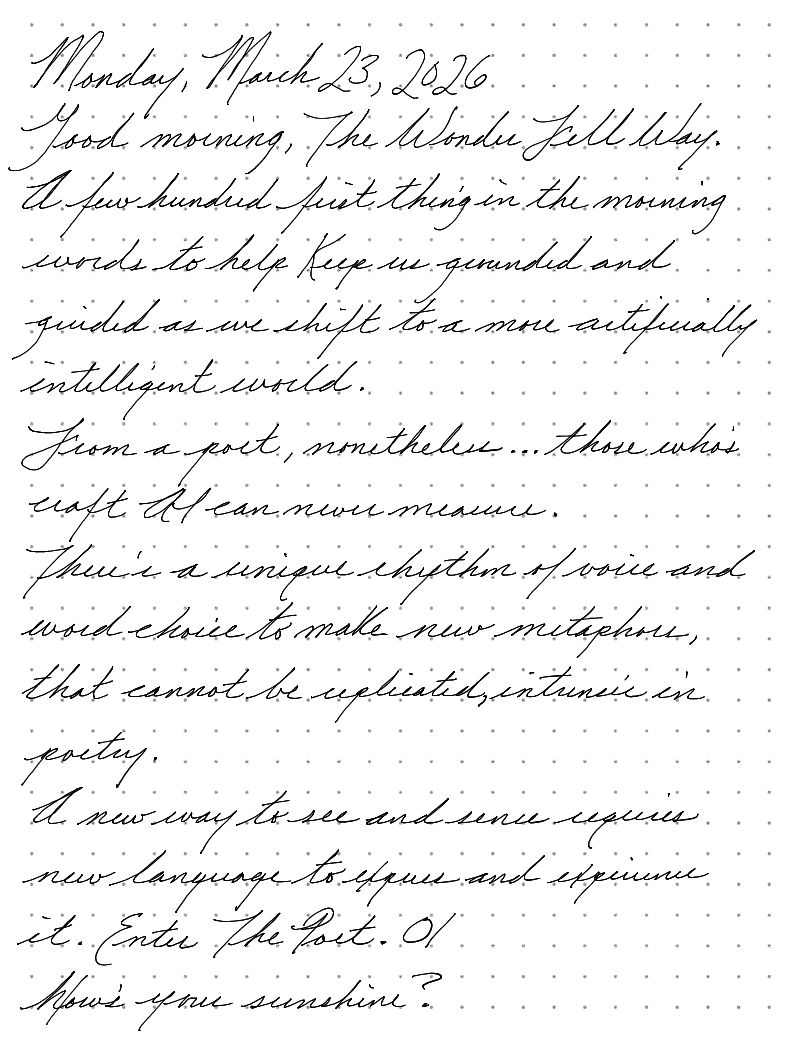 Monday, March 23, 2026
Good morning, The Wonder Fell Way.
A few hundred first thing in the morning
words to help keep us grounded and
guided as we shift to a more artificially
intelligent world.
From a poet, nonetheless... those who's
craft AI can never measure.
There's a unique rhythm of voice and
word choice to make new metaphors,
that cannot be replicated, intrinsic in
poetry.
A new way to see and sense requires
new language to express and experience
it. Enter The Poet. 01
How's your sunshine?